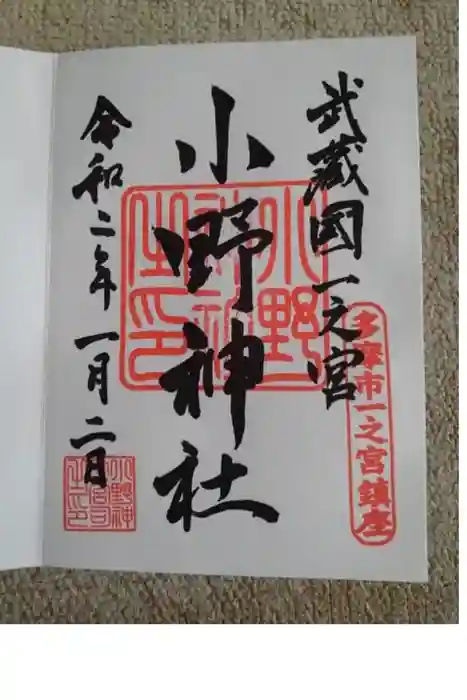 武蔵國一之宮
多摩市一之宮鎮座
小野神社
小野神社之印
令和二年一月二日
小野神
宮司
之印